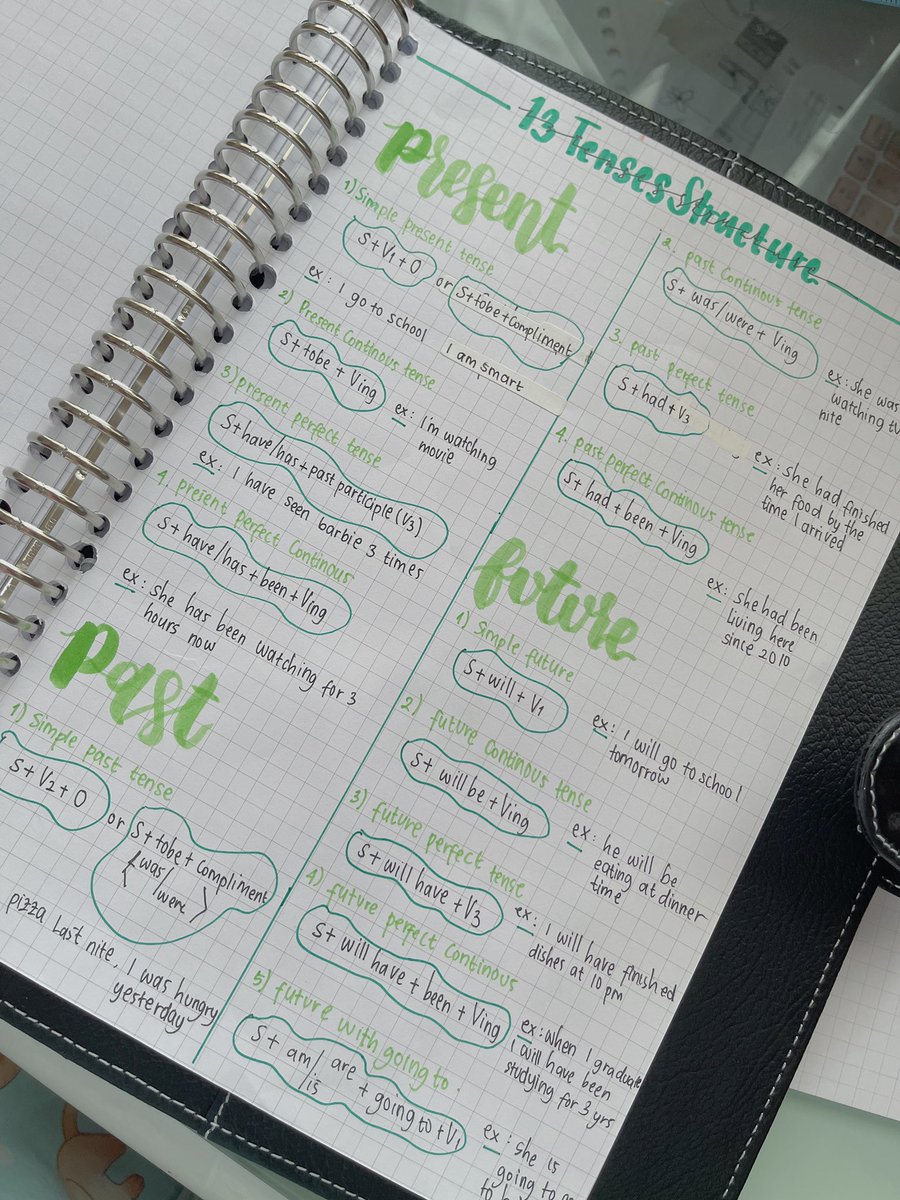 13 Tenses Structure
present
1) Simple present tense
S+V1+O or S+tobe+Compliment
ex : I go to school I am smart
2) Present Continous tense
S+tobe + Ving
ex : I'm watching
movie
3) present perfect tense
S+have/has+past participle (V3)
ex : I have seen barbie 3 times
4. present perfect Continous
S+have/has+been+Ving
ex : she has been watching for 3
hours now
past
1) Simple past tense
S+V2+O or S+tobe+Compliment
(was/
were)
pizza Last nite, I was hungry
yesterday
2. past Continous tense
S+ was/were + Ving
ex : she was
watching tv
nite
3. past perfect tense
S+had+V3
ex : she had finished
her food by the
time I arrived
4. past perfect Continous tense
S+had+been+Ving
ex : she had been
living here
since 2010
future
1) Simple future
S+will+V1
ex : I will go to school
tomorrow
2) future Continous tense
S+ will be +Ving
ex : he will be
eating at dinner
time
3) future perfect tense
S+will have +V3
ex : I will have finished
dishes at 10 pm
4) future perfect Continous
S+ will have + been +Ving
ex : when I graduate
I will have been
studying for 3 yrs
5) future with going to.
S + am/are + going to +V1
/is
ex : she is
going to